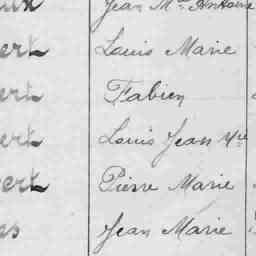 Jean Mie Antoine
ert Louis Marie
ert Fabien
ert Louis Jean Mie
ert Pierre Marie
es Jean Marie